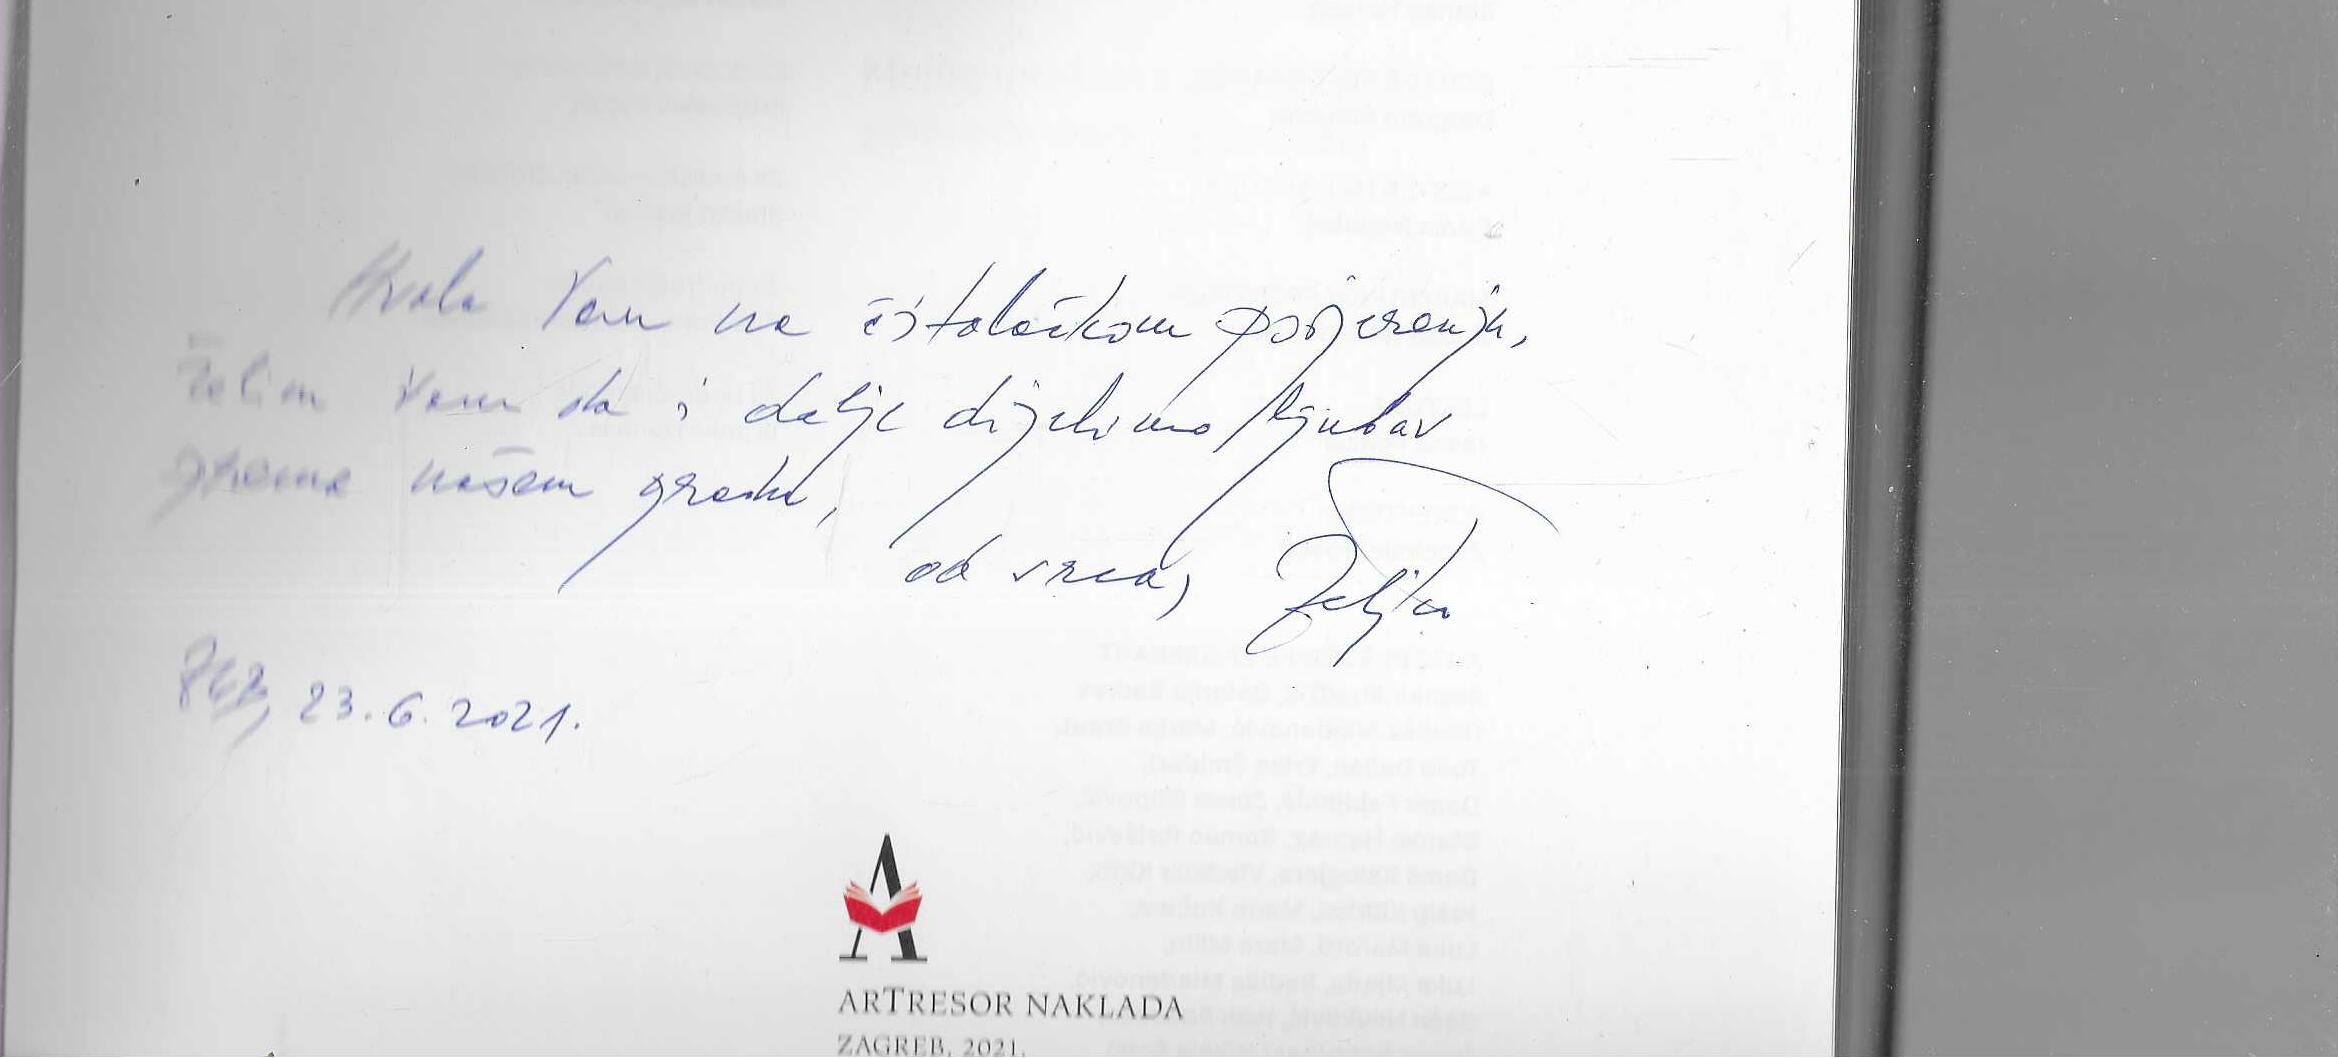 Hvala Vam na čitalačkom povjerenju,
Želim Vam da i dalje dijelimo ljubav
prema našem gradu,
od srca, Željka
23. 6. 2021.
ARTRESOR NAKLADA
ZAGREB, 2021.